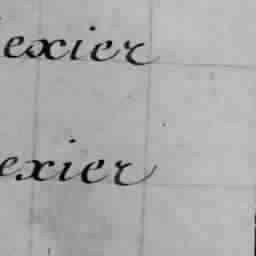 exier
exier